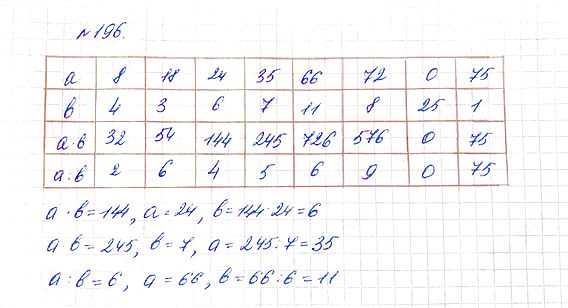 №196.
a 8 18 24 35 66 72 0 75
b 4 3 6 7 11 8 25 1
a·b 32 54 144 245 726 576 0 75
a:b 2 6 4 5 6 9 0 75
a·b=144, a=24, b=144:24=6
a·b=245, b=7, a=245:7=35
a:b=6, a=66, b=66:6=11